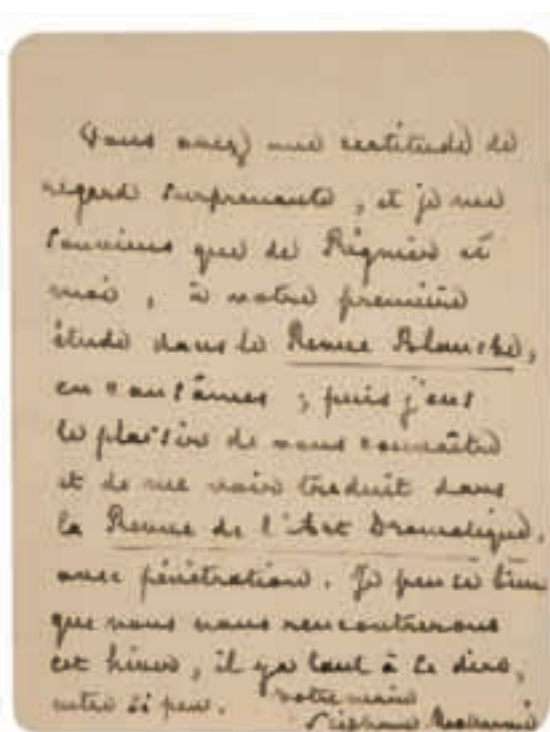 Vous avez une certitude de
regard surprenante, et je me
souviens que de Régnier et
moi, à votre première
étude dans la Revue Blanche,
en causâmes ; puis j'eus
le plaisir de vous connaître
et de me voir traduit dans
la Revue de l'Art Dramatique,
avec pénétration. Je pense bien
que nous nous rencontrerons
cet hiver, il y a tout à se dire,
entre si peu. Votre main
Stéphane Mallarmé